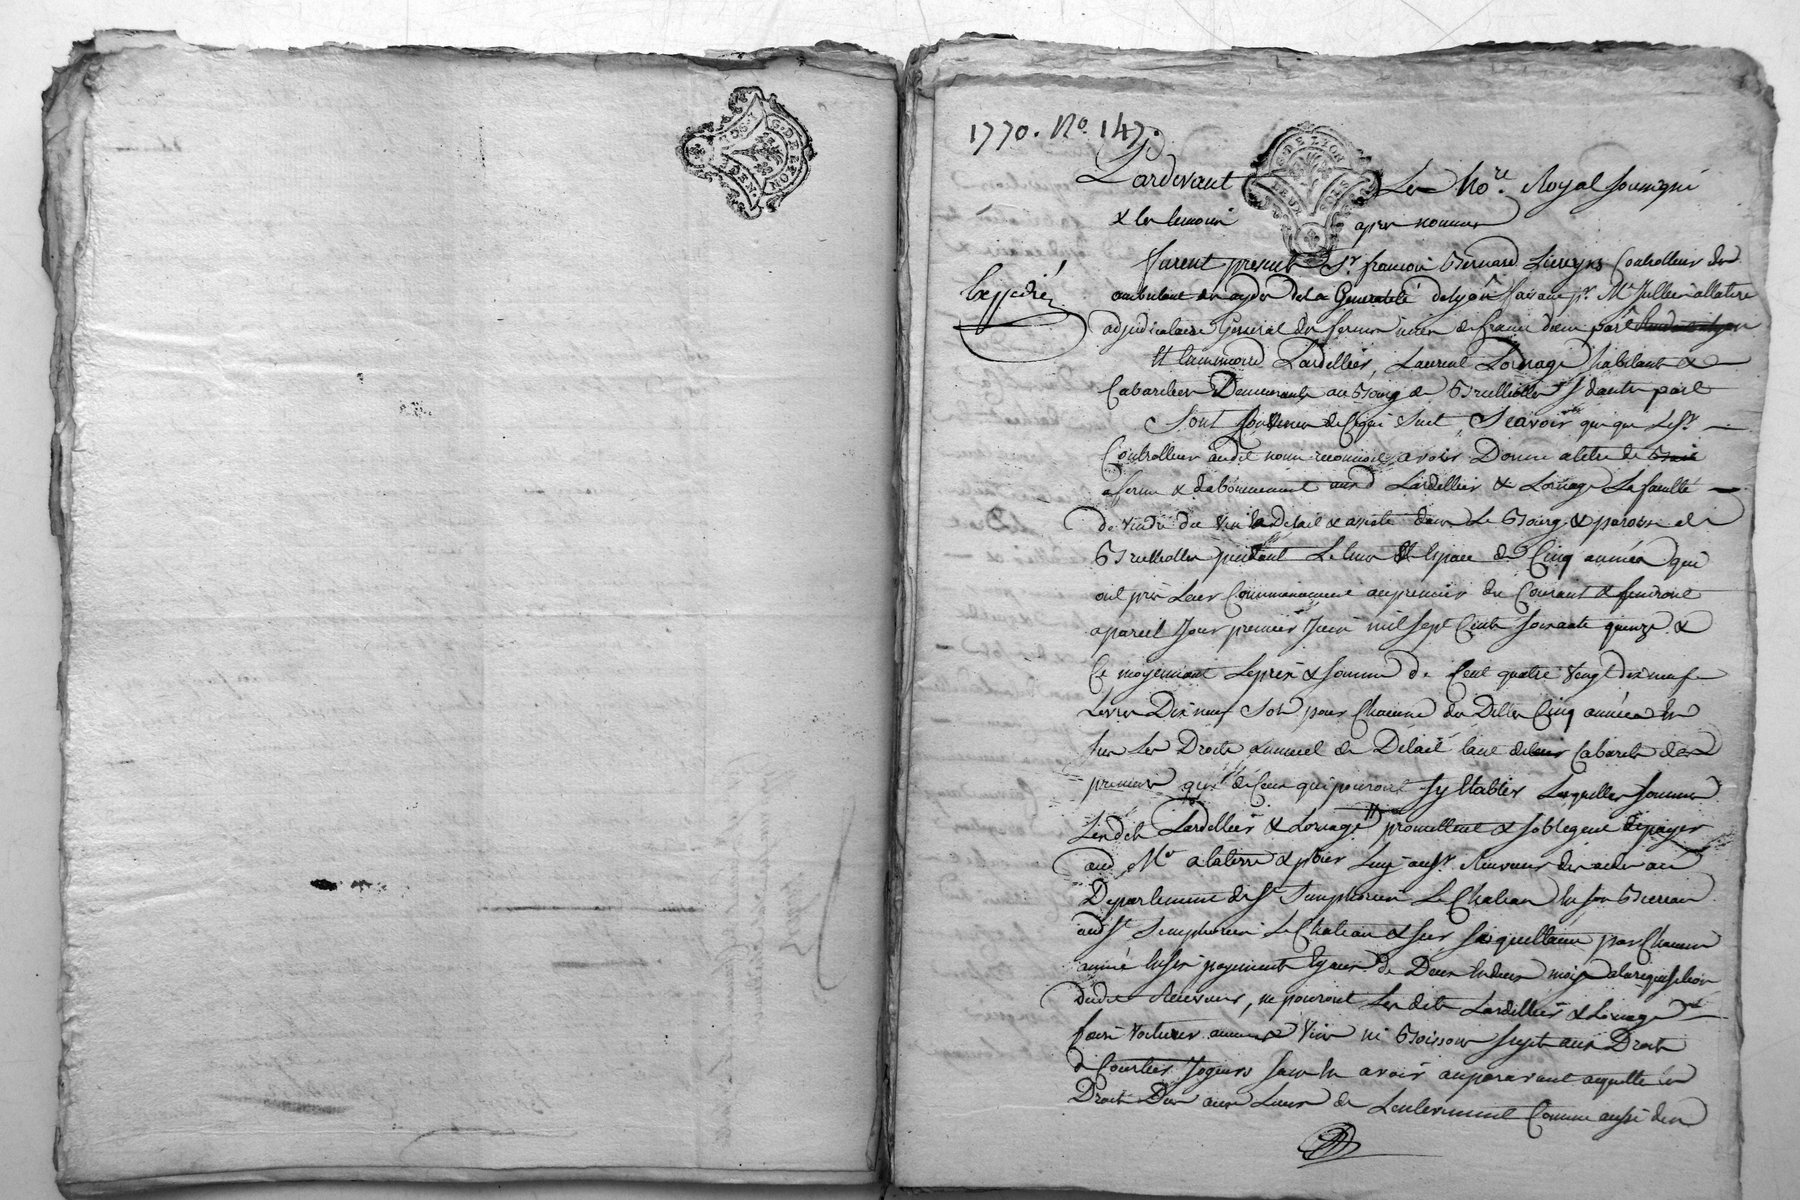 G. DE LYON
DEUX SOLS
1770. No. 147.
G. DE LYON
DEUX SOLS
Pardevant Le No.re Royal soussigné
& les temoins apres nommes
Expedié
furent presents Sr. françois Bernard Controlleur
ambulant des aydes de la Generalité de lyon faisant pr. Me. Jullien allaterre
adjudicataire General des fermes unies de france d'une part
Et Lardellier, Laurent Lornage habitants &
Cabaretiers Demeurants au Bourg de Brullioles d'autre part
Sont Convenus de Ce qui Suit, Scavoir que Le Sr.
Controlleur audit nom reconnoit avoir Donné a titre de
a ferme & d'abonnement aux d Lardellier & Lornage La faculté
de vendre du vin en Detail & assiete dans Le Bourg & paroisse de
Brullioles pendant Le tems & Espace de Cinq années qui
ont pris Leur Commencement au premier du Courant & finiront
a pareil Jour premier Juin mil sept Cents soixante quinze &
Ce moyennant Le prix & somme de Cent quatre vingt dix neuf
Livres Dix neuf Sols pour Chacune des Dittes Cinq années
sur Les Droits annuel de Detail tant de leurs Cabarets des
premiers que de Ceux qui pouront s'y Etablir Lesquelles sommes
Les dits Lardellier & Lornage promettent & s'obligent de payer
aud. Me. alaterre & pour Luy au Sr. Receveur des aides au
Departement de St. Simphorien Le Chateau En son Bureau
aud St. Simphorien Le Chateau & sur Ses quittances par Chacune
année En six payements Egaux de Deux En deux mois a la requisition
dudit Receveur, ne pouront Les dits Lardellier & Lornage
faire voiturer aucuns vins ni Boissons sujets aux Droits
de Courtiers Jogeurs sans En avoir auparavant aquitté les
Droits Dus aux Lieux de L'enlevement Comme aussi des